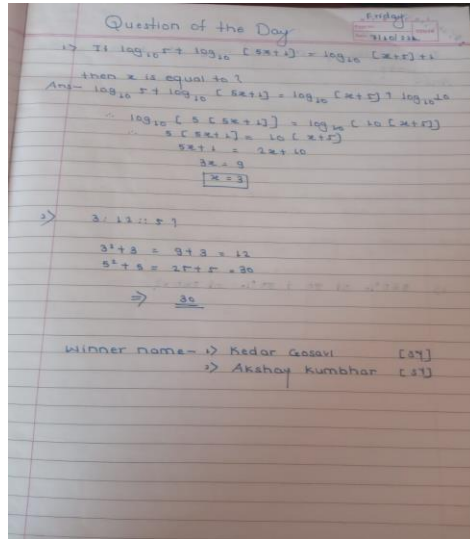 Question of the Day
Friday
1) If log10 5 + log10 [5x+1] = log10 [x+5] + 1
then x is equal to ?
Ans- log10 5 + log10 [5x+1] = log10 [x+5] + log10 10
∴ log10 [5 [5x+1]] = log10 [10 [x+5]]
∴ 5 [5x+1] = 10 [x+5]
5x+1 = 2x+10
3x = 9
x = 3
2) 3 : 12 :: 5 ?
3²+3 = 9+3 = 12
5²+5 = 25+5 = 30
⇒ 30
Winner name - 1) Kedar Gosavi [SY]
2) Akshay Kumbhar [SY]